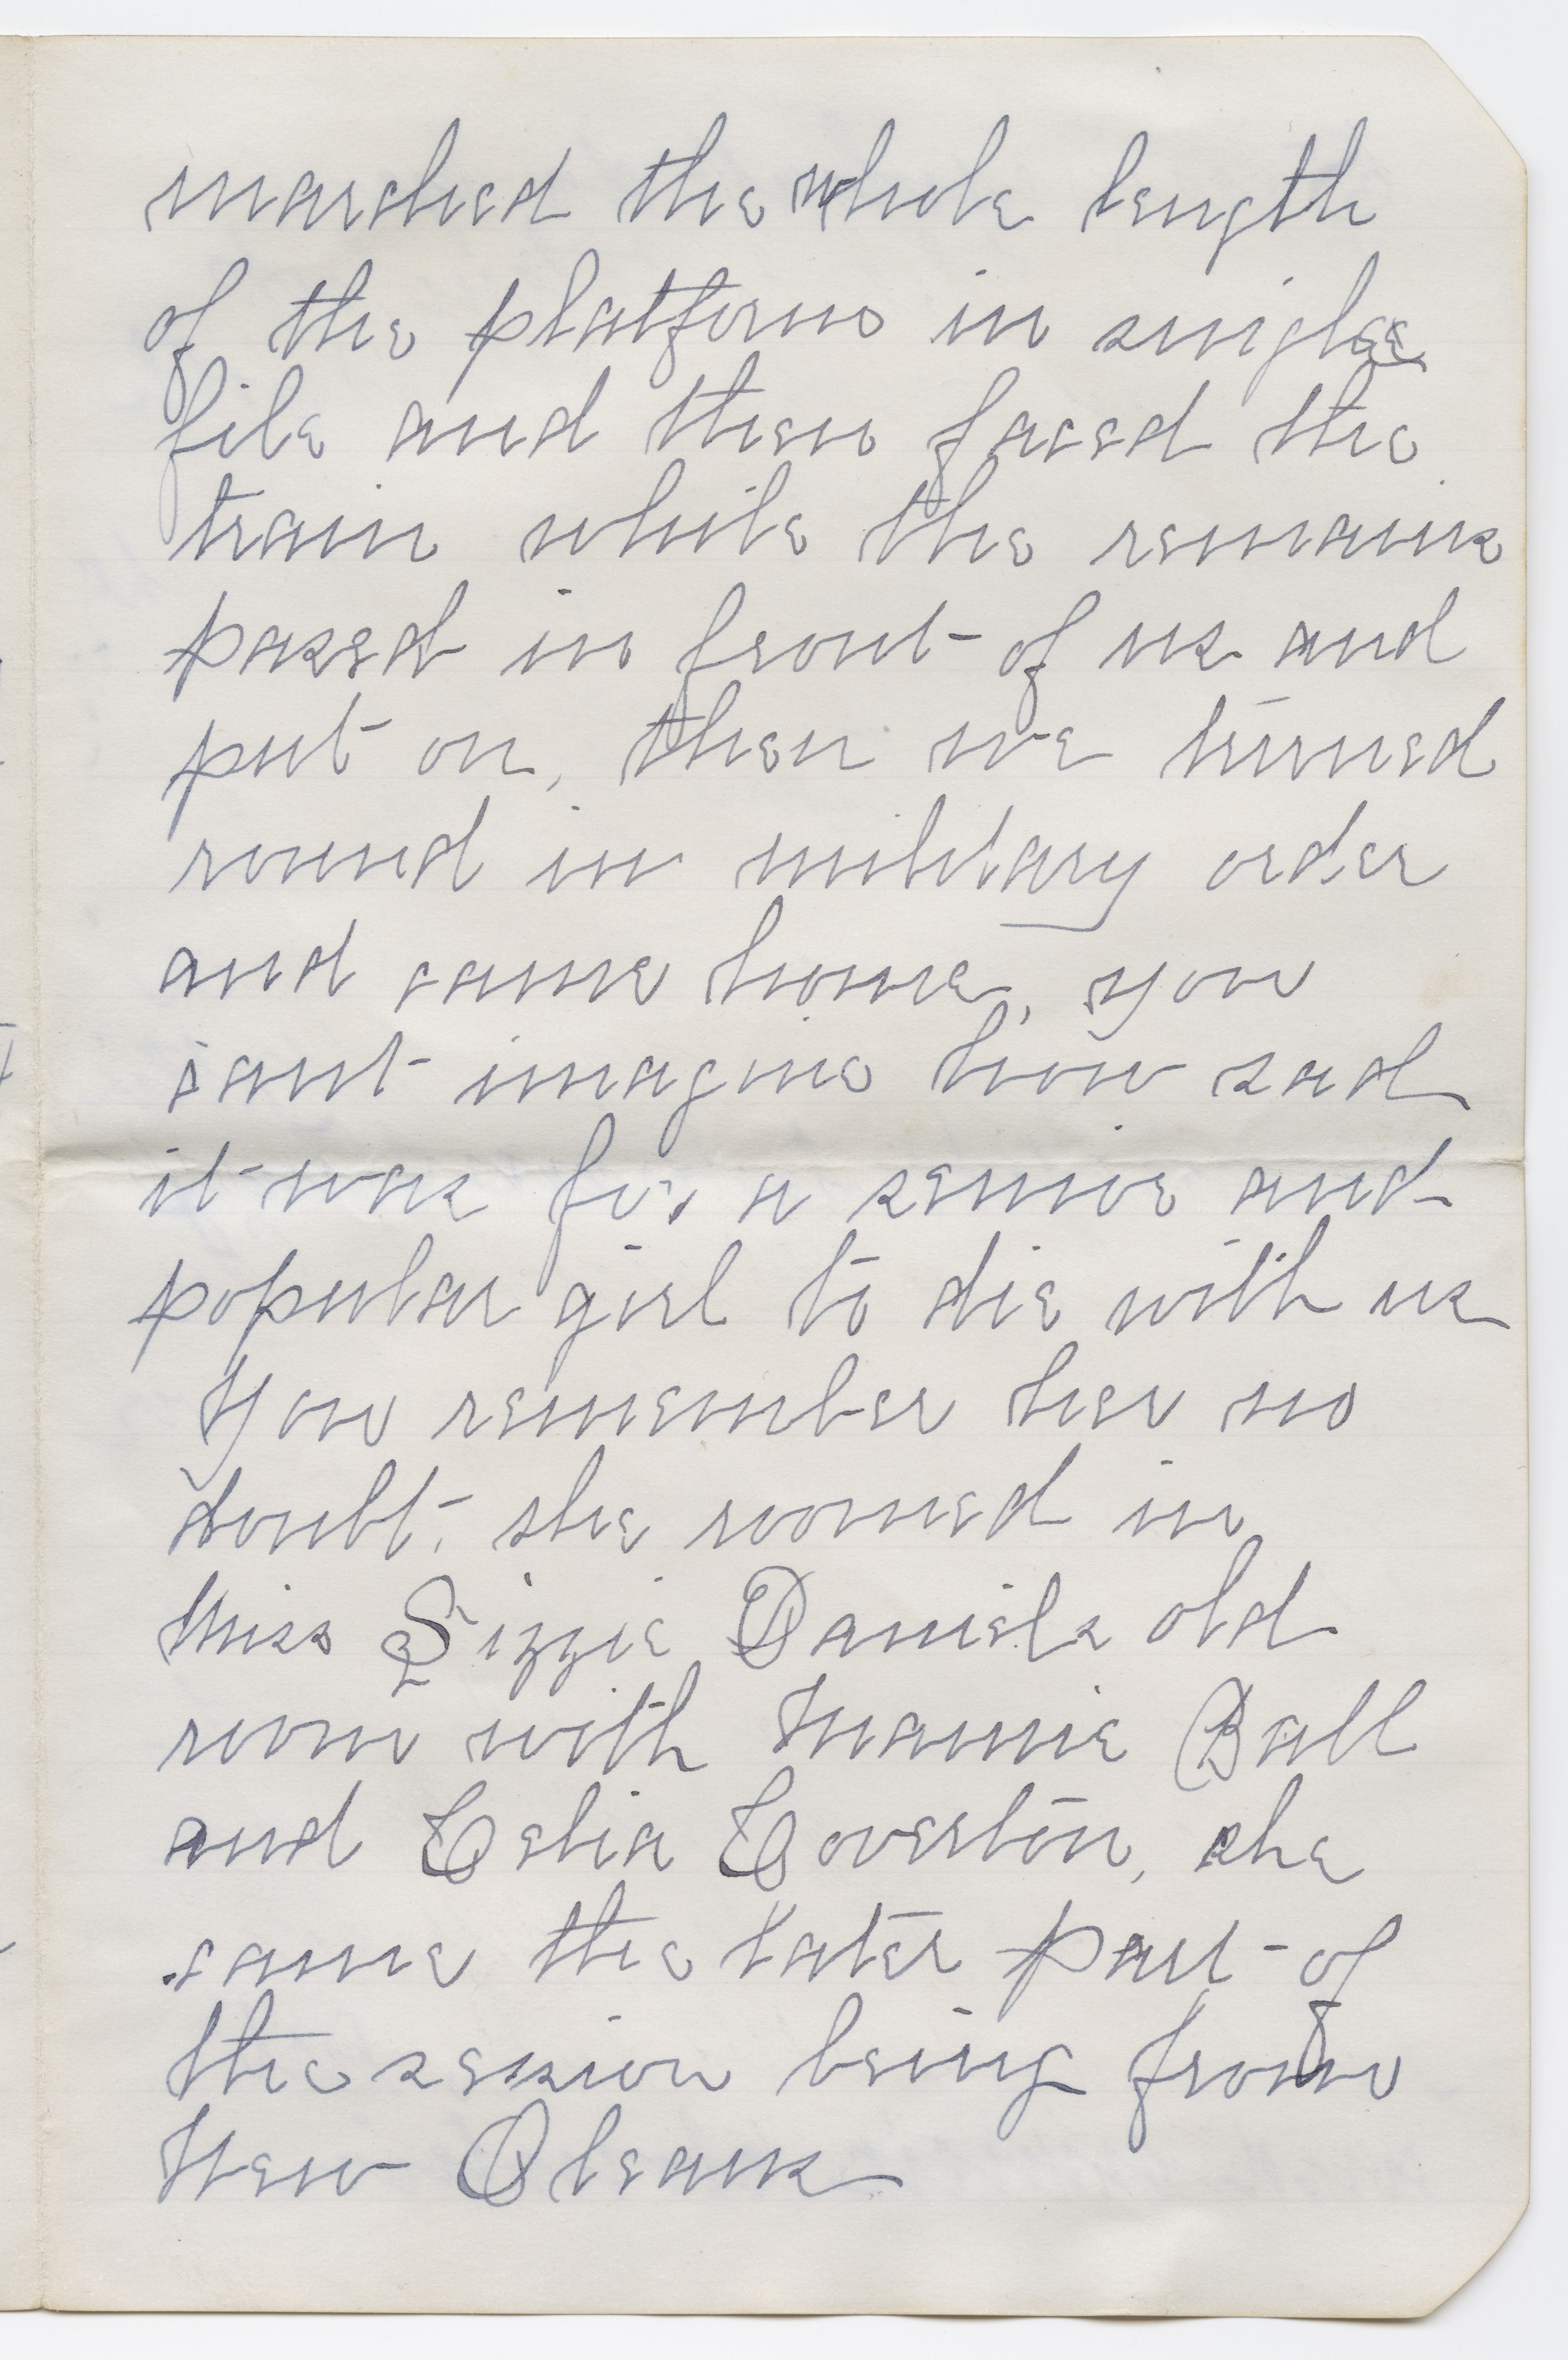 marched the whole length
of the platform in single
file and then faced the
train while the remains
passed in front of us and
put on, then we turned
round in military order
and came home, you
cant imagine how sad
it was for a senior and
popular girl to die with us
You remember her no
doubt, she roomed in
Miss Lizzie Daniels old
room with Mamie Ball
and Celia Coverton, she
came the later part of
the session being from
New Orleans